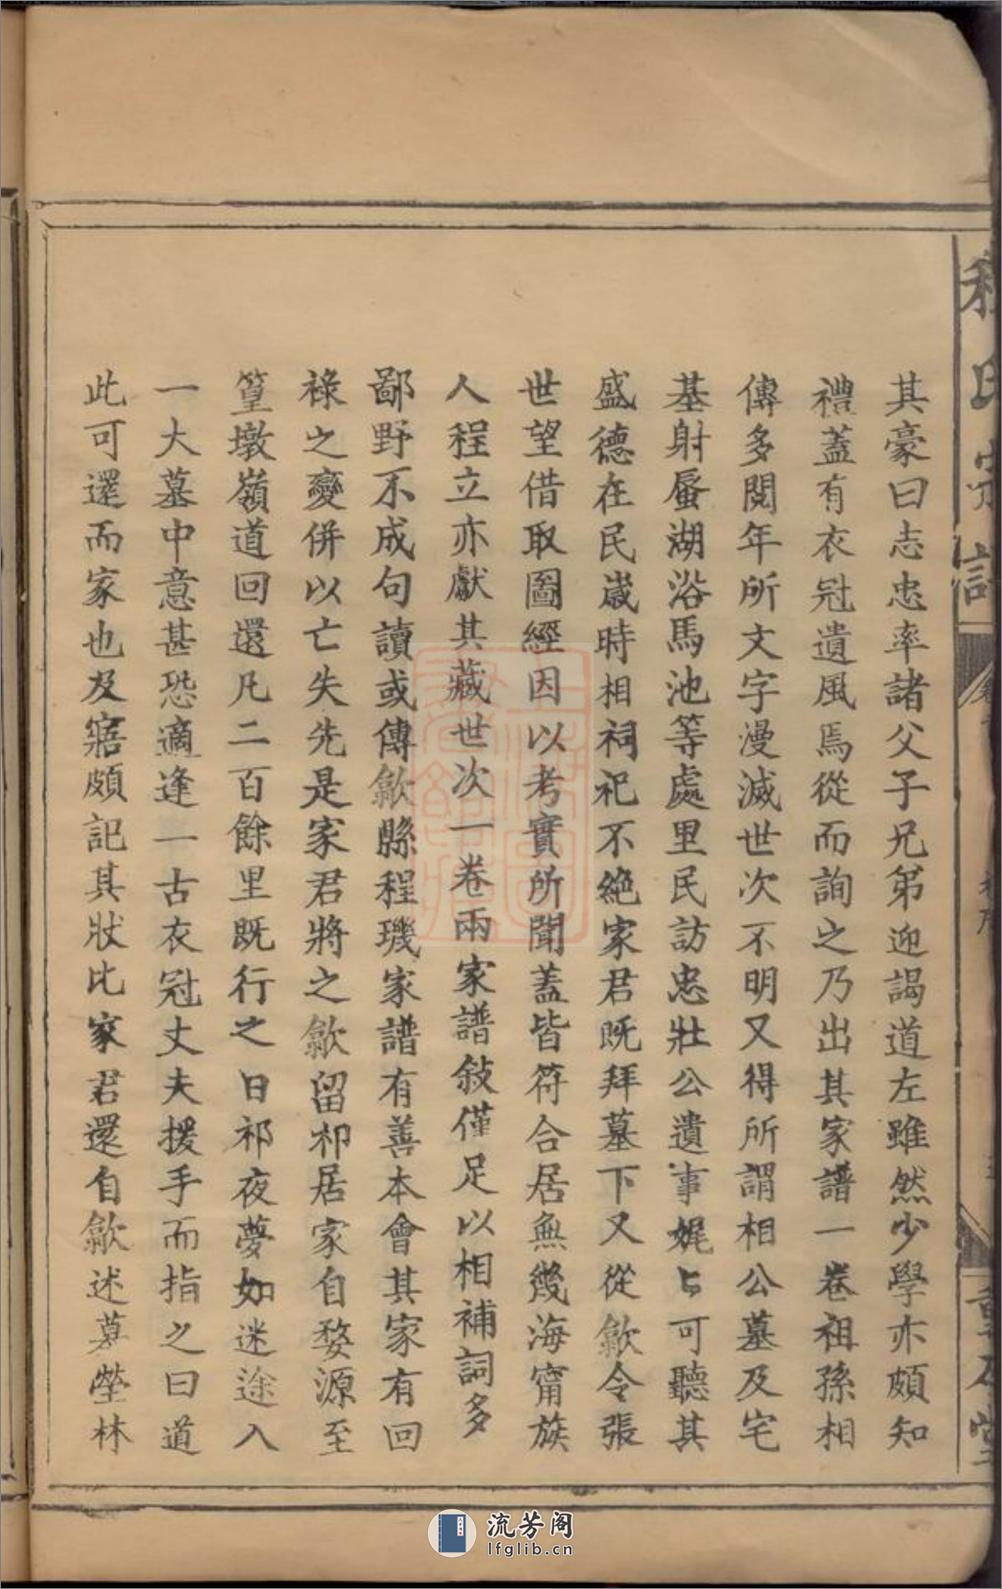 程氏宗譜
其豪曰志忠率諸父子兄弟迎謁道左雖然少學亦頗知
禮蓋有衣冠遺風焉從而詢之乃出其家譜一卷祖孫相
傳多閱年所文字漫滅世次不明又得所謂相公墓及宅
基射蜃湖浴馬池等處里民訪忠壯公遺事娓〻可聽其
盛德在民歲時相祠祀不絶家君既拜墓下又從歙令張
世望借取圖經因以考實所聞蓋皆符合居無幾海甯族
人程立亦獻其藏世次一卷兩家譜敍僅足以相補詞多
鄙野不成句讀或傳歙縣程璣家譜有善本會其家有回
祿之變併以亡失先是家君將之歙留祁居家自婺源至
篁墩嶺道回還凡二百餘里既行之日祁夜夢如迷途入
一大墓中意甚恐適逢一古衣冠丈夫援手而指之曰道
此可還而家也及寤頗記其狀比家君還自歙述墓塋林
流芳阁
lfglib.cn